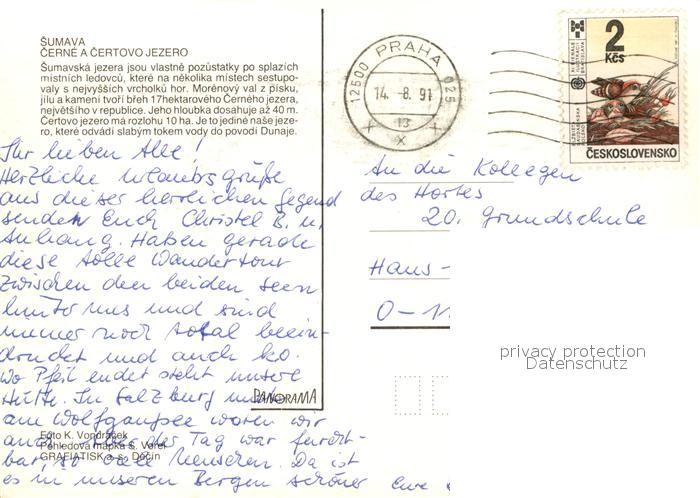 ŠUMAVA
ČERNÉ A ČERTOVO JEZERO
Šumavská jezera jsou vlastně pozůstatky po splazích
místních ledovců, které na několika místech sestupo-
valy s nejvyšších vrcholků hor. Morénový val z písku,
jílu a kamení tvoří břeh 17hektarového Černého jezera,
největšího v republice. Jeho hloubka dosahuje až 40 m.
Čertovo jezero má rozlohu 10 ha. Je to jediné naše jeze-
ro, které odvádí slabým tokem vody do povodí Dunaje.
Ihr lieben Alle!
Herzliche Urlaubsgrüße
aus dieser herrlichen Gegend
senden Euch Christel B. u.
Anhang. Haben gerade
diese tolle Wandertour
zwischen den beiden Seen
hinter uns und sind
immer noch total beein-
druckt und auch ko.
Wo Pfeil endet steht unsere
Hütte. In Salzburg und
am Wolfgangsee waren wir
auch. Aber der Tag war furcht-
bar, so viele Menschen. Da ist
es in unseren Bergen schöner
Eure
Foto K. Vondráček
Pohledová mapka S. Verel
GRAFIATISK a. s. Děčín
PANORAMA
12500 PRAHA 025
14. -8. 91
13
2
Kčs
ČESKOSLOVENSKO
An die Kollegen
des Hortes
20. Grundschule
Hans-
O-11
privacy protection
Datenschutz